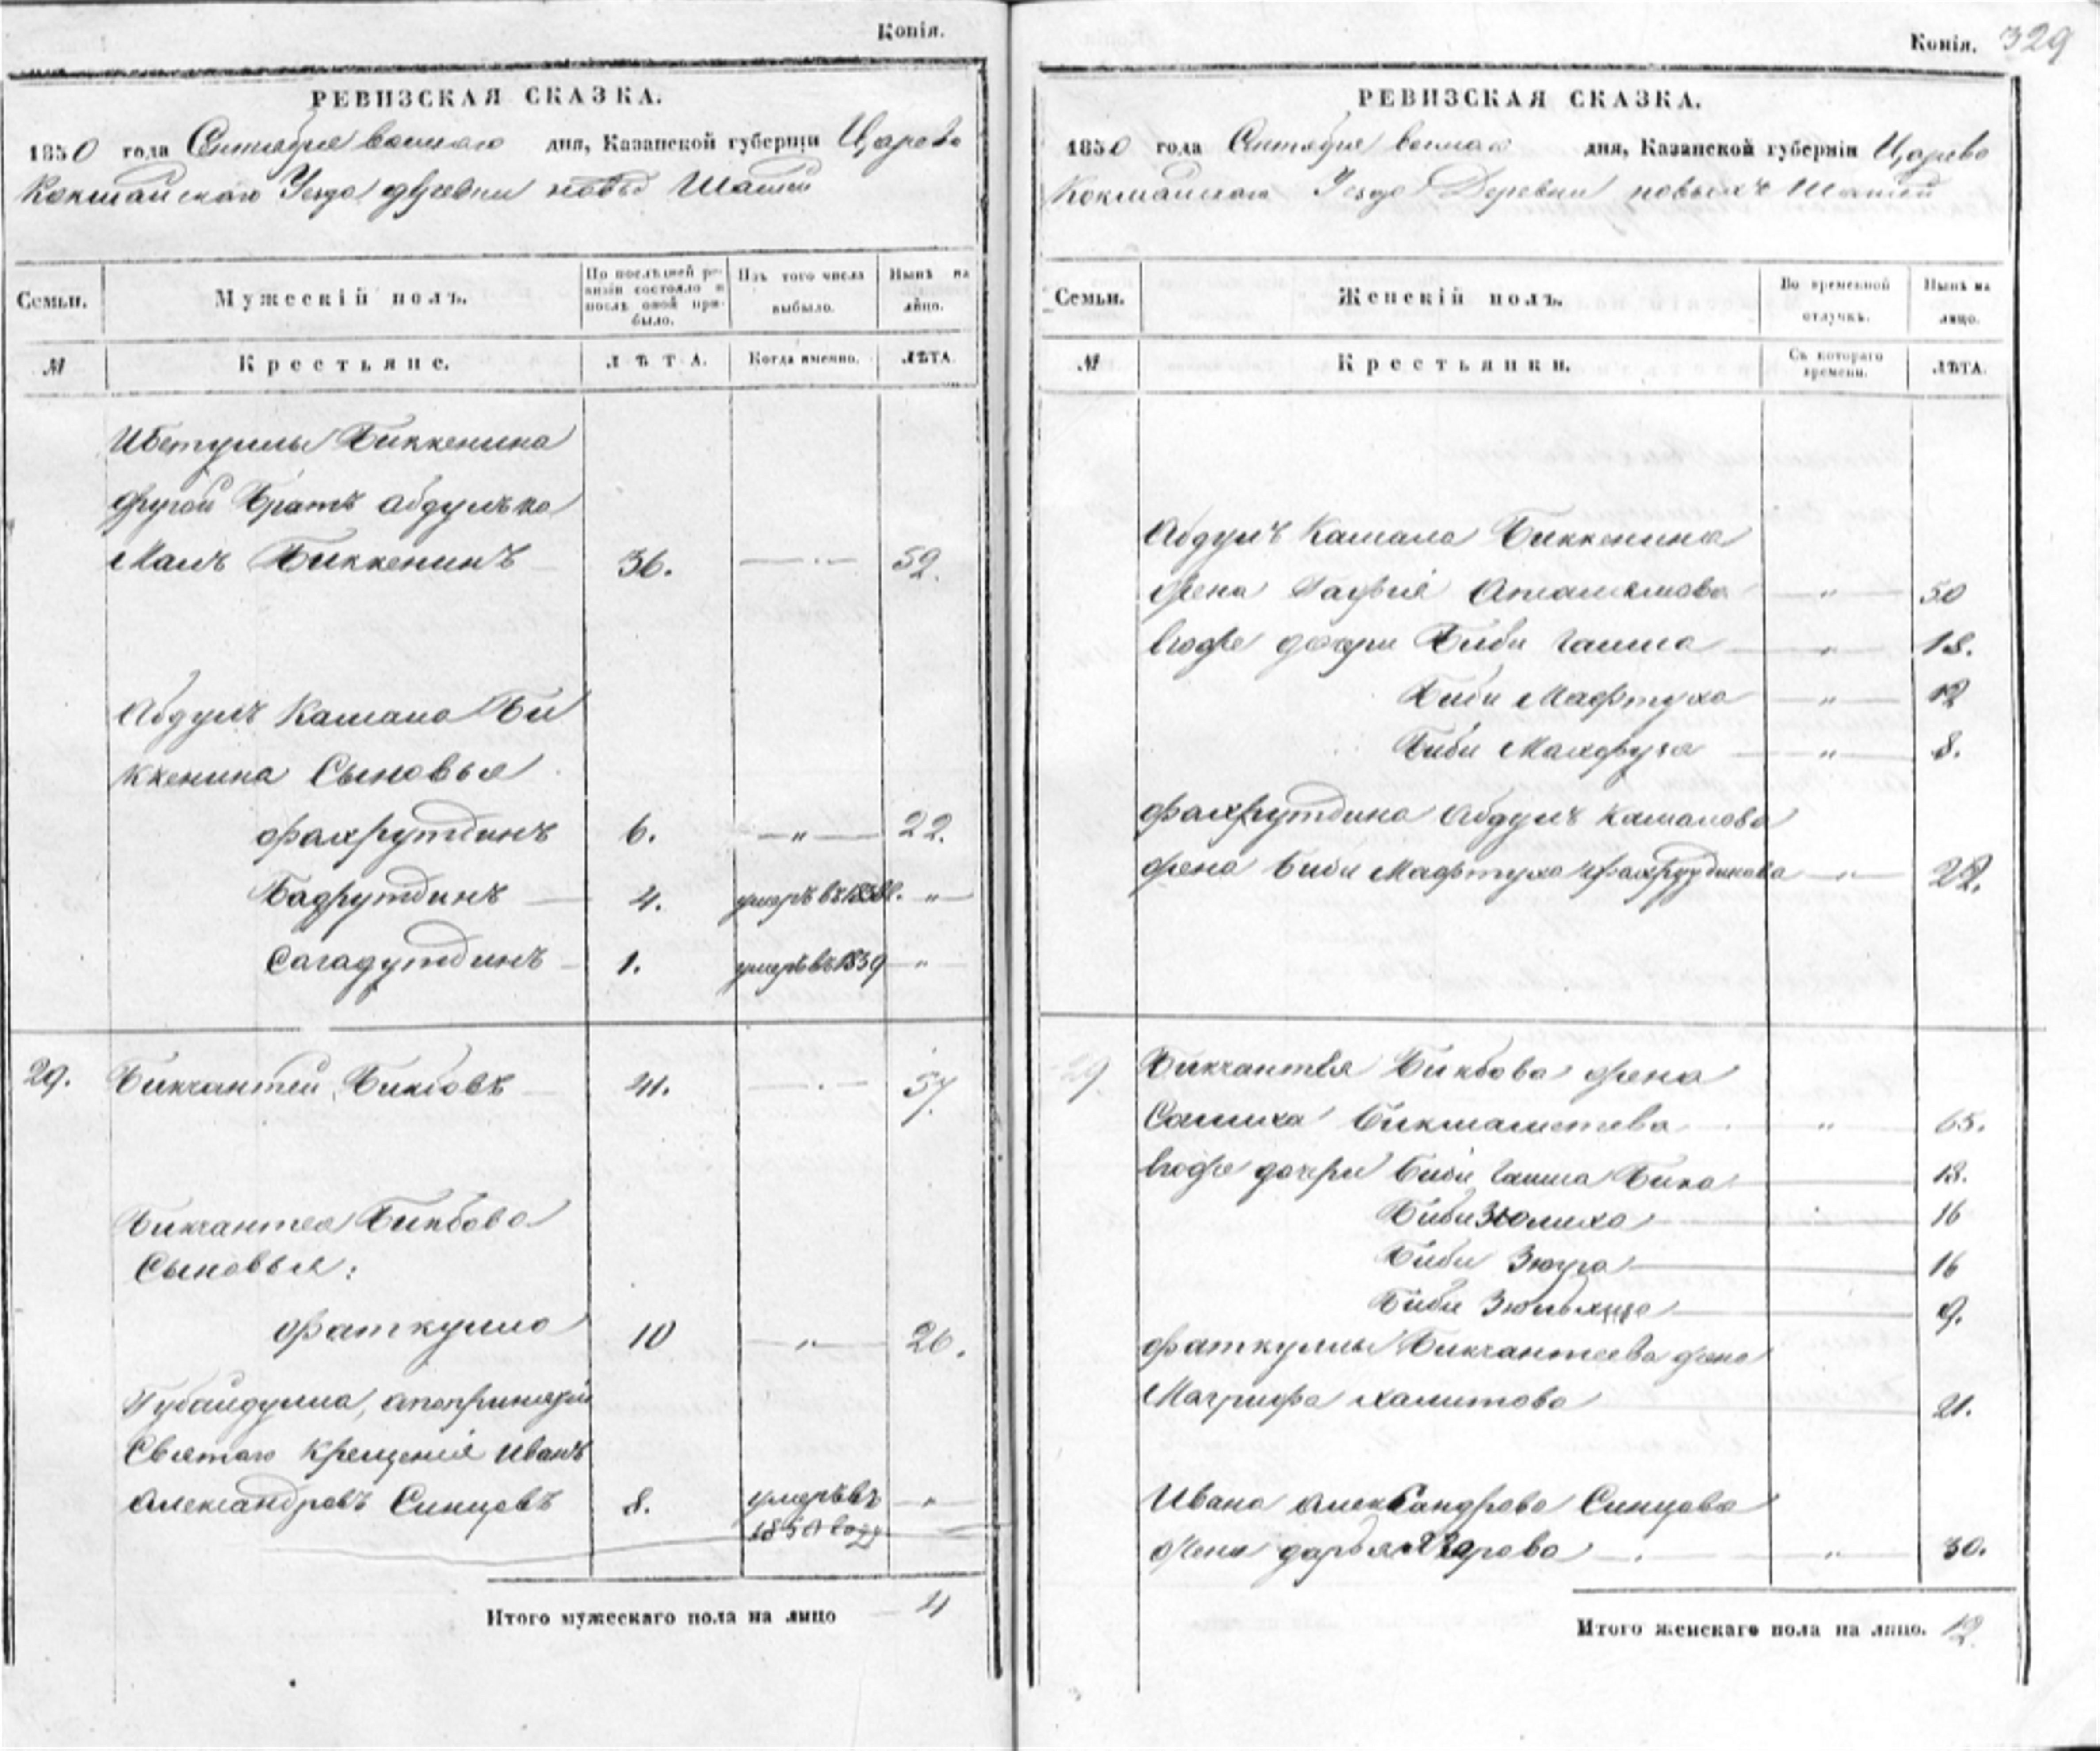 Копія.
РЕВИЗСКАЯ СКАЗКА.
1850 года Сентября дня, Казанской губерніи Царево
Кокшайскаго Уезда деревни новы
Семьи.
Мужескій полъ.
По послѣдней ре-
визіи состояло и
послѣ оной при-
было.
Изъ того числа
выбыло.
Нынѣ на
лицо.
№
Крестьяне.
ЛѢТА.
Когда именно.
ЛѢТА.
Биккенина
другой Братъ Абдулъка
малъ Биккенинъ 36. 52.
Абдулъ Камала Би
ккенина Сыновья
Фахрутдинъ 6. " 22.
Бадрутдинъ 4. умеръ въ "
Сагадутдинъ 1. умеръ въ 1839 "
29. Бикчантей Бикбовъ 41. 57.
Бикчантея Бикбова
Сыновья:
Фаткулла 10 " 26.
Губайдулла,
Святаго крещенія Иванъ
Александровъ Синцовъ 8. умеръ въ "
1850 году
Итого мужескаго пола на лицо 4
Копія. 329
РЕВИЗСКАЯ СКАЗКА.
1850 года Сентября дня, Казанской губерніи Царево
Кокшайскаго Уезда Деревни новыхъ
Семьи.
Женскій полъ.
Во временной
отлучкѣ.
Нынѣ на
лицо.
№
Крестьянки.
Съ котораго
времени.
ЛѢТА.
Абдулъ Камала Биккенина
жена " 50
дочери Биби Гайша " 18.
Биби Мафтуха " 12
Биби Махфуза " 8.
Фахрутдина Абдулъ Камалова
жена Биби Мафтуха "
29 Бикчантея Бикбова жена
Салиха Бикмаметева " 65.
дочери Биби Гайша Бика 18.
Биби Золиха 16
Биби Зюгра 16
Биби 9.
Фаткуллы Бикчантеева жена
Магрифа Халитова 21.
Ивана Александрова Синцова
жена Дарья " 30.
Итого женскаго пола на лицо. 12